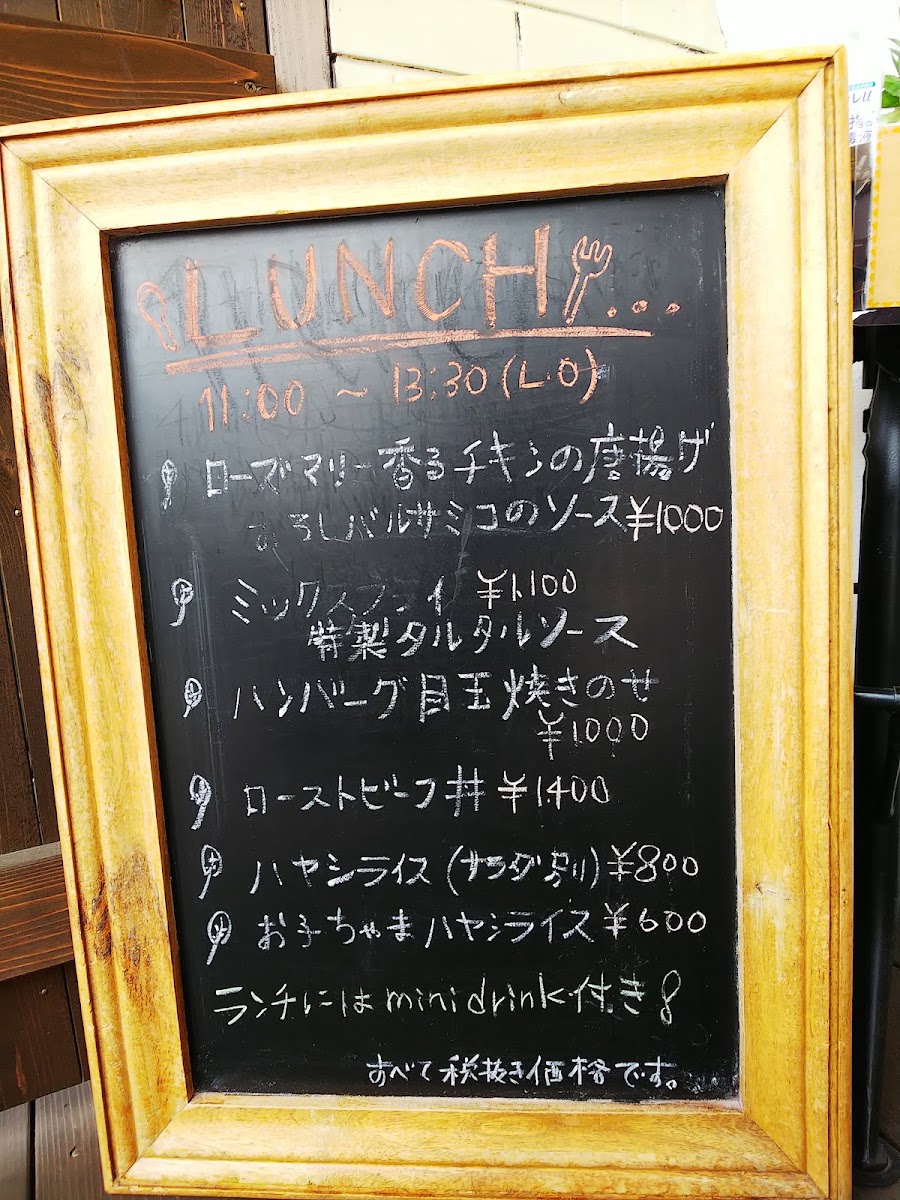 LUNCH...
11:00 ~ 13:30(L.O)
ローズマリー香るチキンの唐揚げ
おろしバルサミコのソース ¥1000
ミックスフライ ¥1,100
特製タルタルソース
ハンバーグ目玉焼きのせ
¥1000
ローストビーフ丼 ¥1,400
ハヤシライス(サラダ別り) ¥800
お子ちゃまハヤシライス ¥600
ランチにはmini drink付き
すべて税抜き価格です。